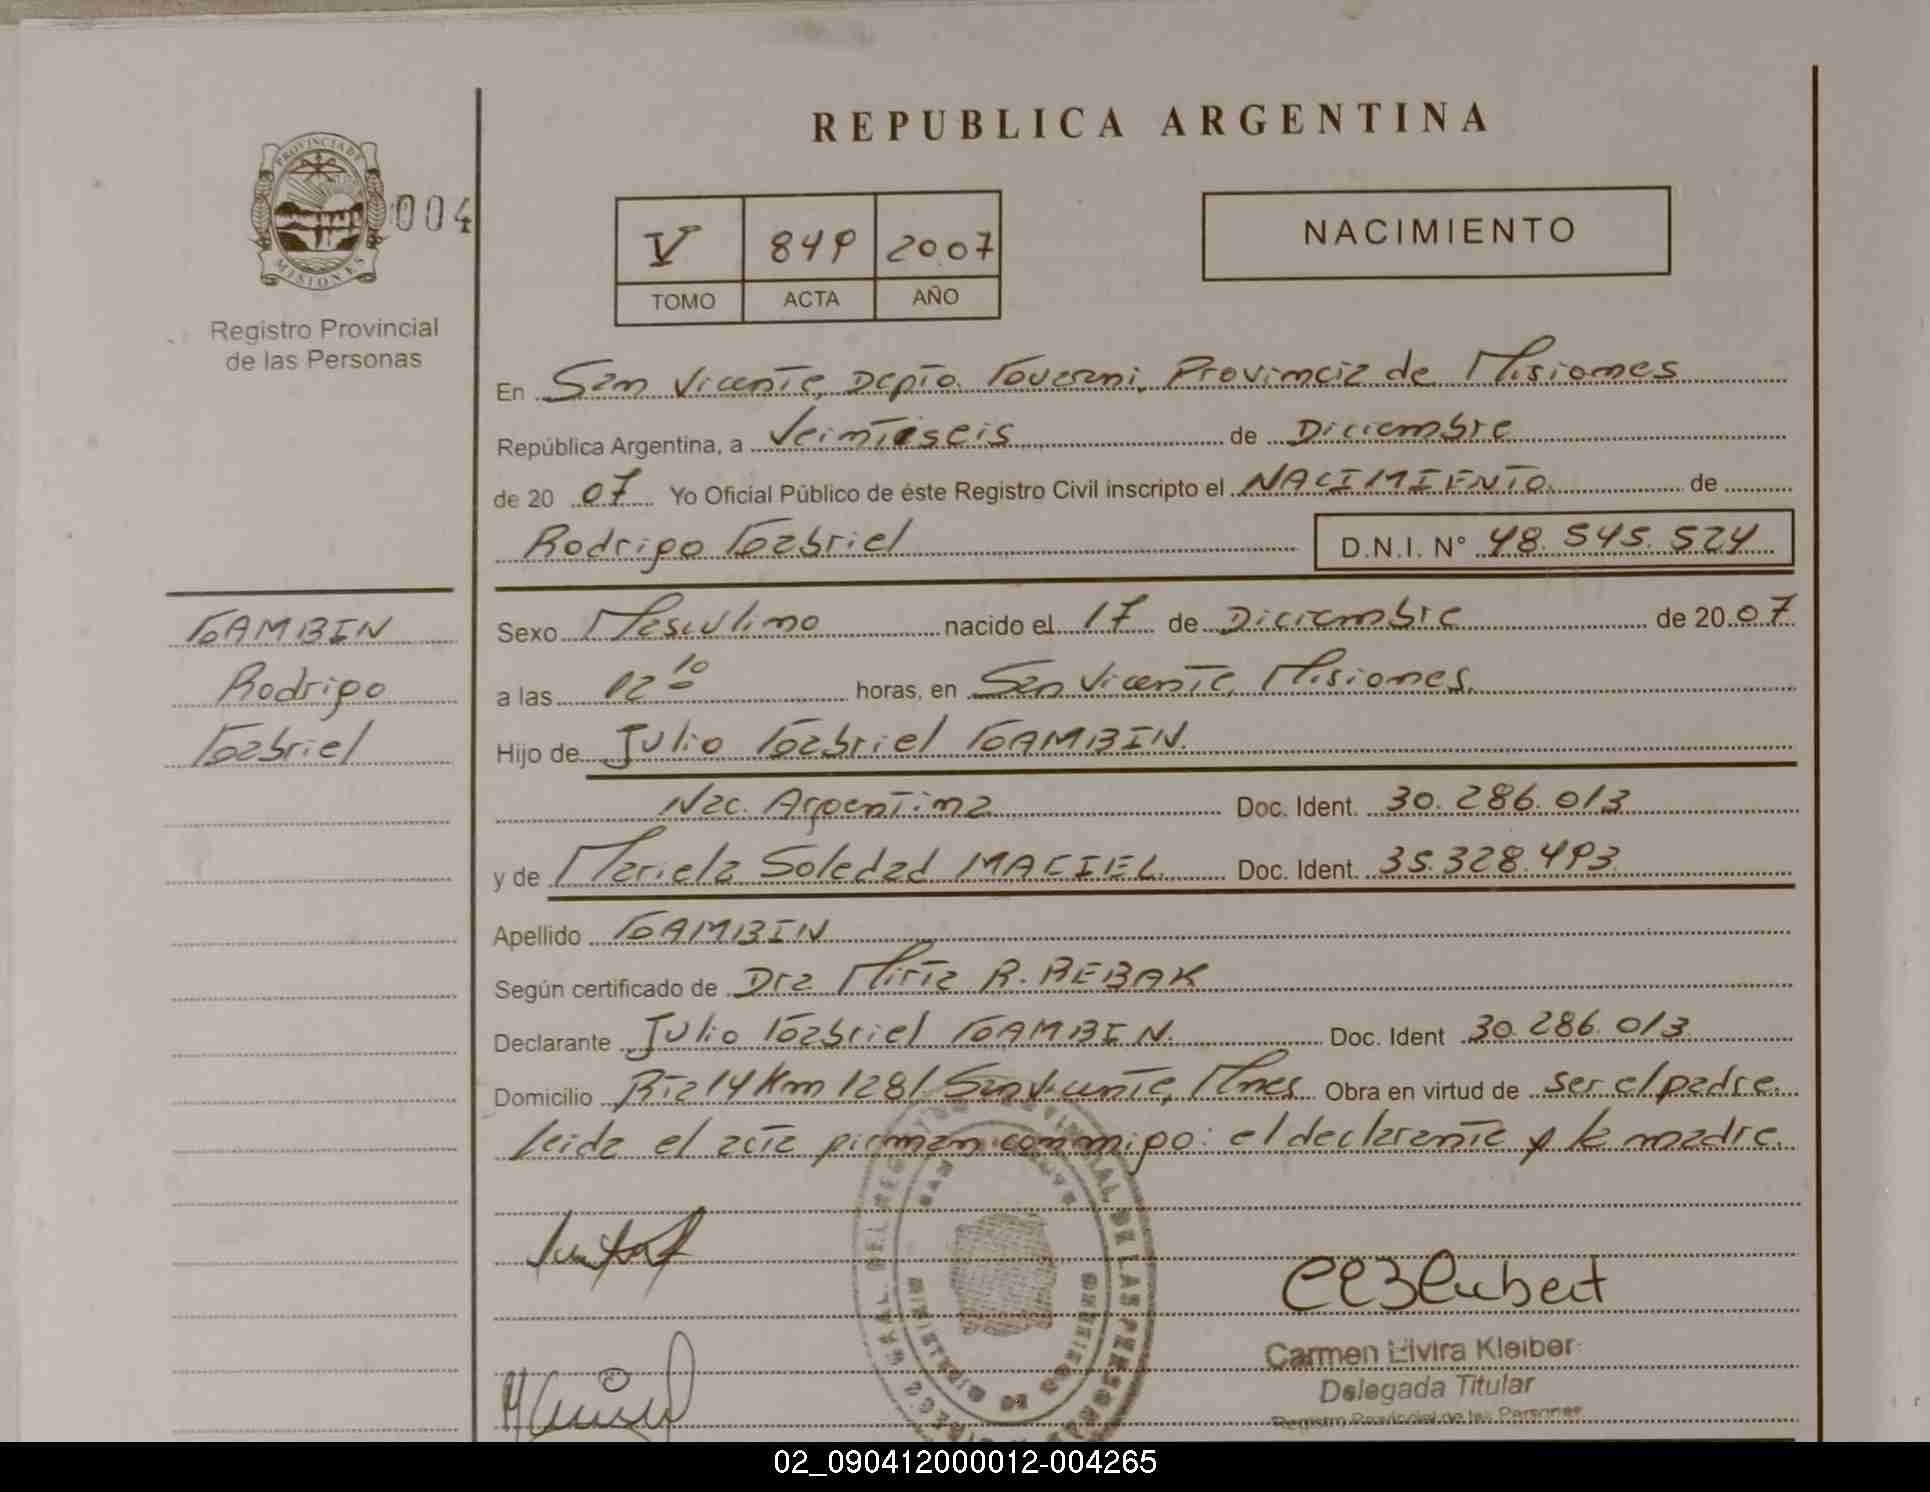 REPUBLICA ARGENTINA
PROVINCIA DE
MISIONES
004
Registro Provincial
de las Personas
V 849 2007
TOMO ACTA AÑO
NACIMIENTO
En San Vicente, Depto. Guaraní, Provincia de Misiones
República Argentina, a Veintiseis de Diciembre
de 20 07 Yo Oficial Público de éste Registro Civil inscripto el NACIMIENTO de
Rodrigo Gabriel D.N.I. N° 48.545.524
GAMBIN
Rodrigo
Gabriel
Sexo Masculino nacido el 17 de Diciembre de 20 07
a las 12 10 horas, en San Vicente, Misiones.
Hijo de Julio Gabriel GAMBIN.
Nac. Argentina Doc. Ident. 30.286.013
y de Mariela Soledad MACIEL. Doc. Ident. 35.328.493
Apellido GAMBIN
Según certificado de Dra Mirta R. REBAK
Declarante Julio Gabriel GAMBIN. Doc. Ident 30.286.013
Domicilio Rta 14 Km 1281 San Vicente, Mnes. Obra en virtud de ser el padre.
Leida el acta firman conmigo: el declarante y la madre.
Carmen Elvira Kleiber
Delegada Titular
Registro Provincial de las Personas
02_090412000012-004265